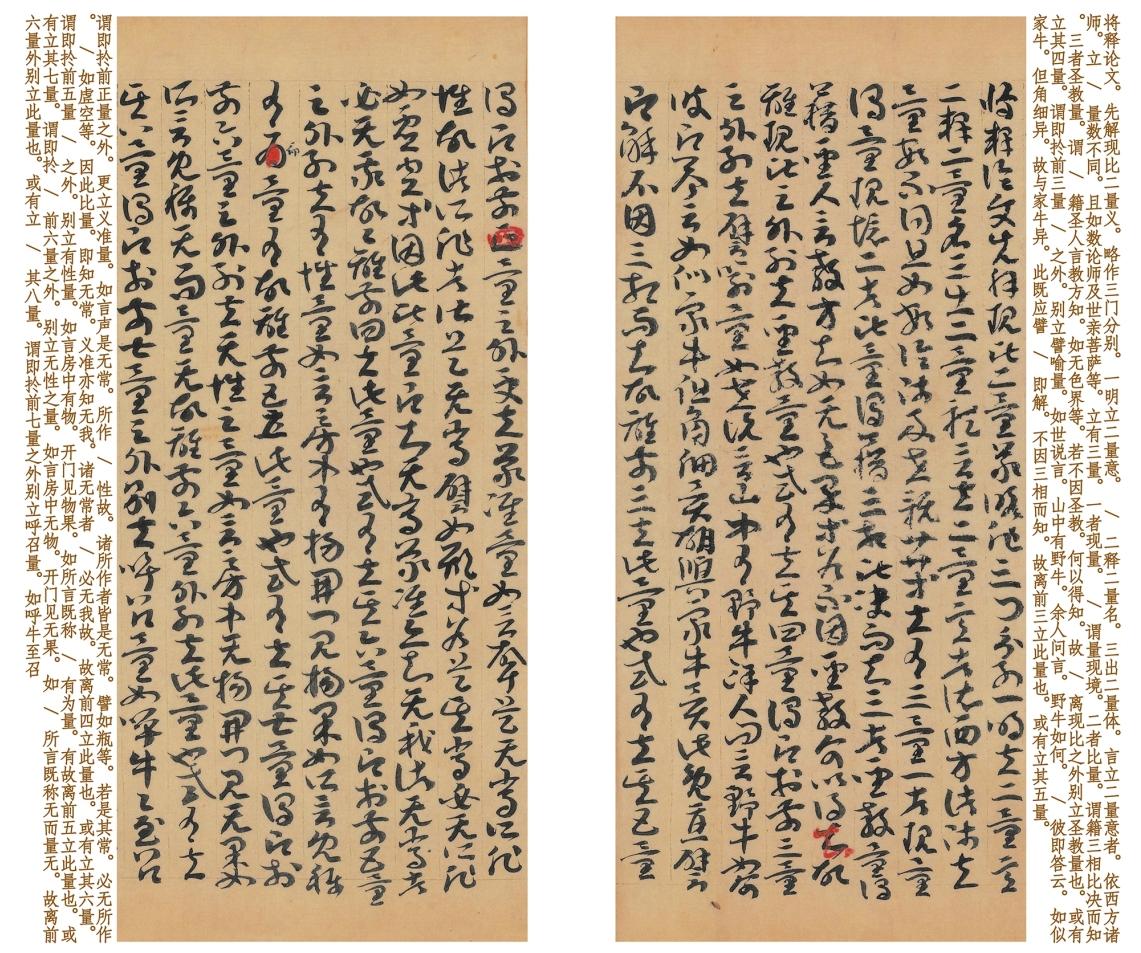 将释论文。先解现比二量义。略作三门分别。一明立二量意。/二释二量名。三出二量体。言立二量意者。依西方诸
师。立/量数不同。且如数论师及世亲菩萨等。立有三量。一者现量。/谓量现境。二者比量。谓籍三相比决而知
。三者圣教量。谓/籍圣人言教方知。如无色界等。若不因圣教。何以得知。故/离现比之外别立圣教量也。或有
立其四量。谓即扵前三量/之外。别立譬喻量。如世说言。山中有野牛。余人问言。野牛如何。/彼即答云。如似
家牛。但角细异。故与家牛异。此既应譬/即解。不因三相而知。故离前三立此量也。或有立其五量。
将释论文先解现比二量义略作三门分别一明立二量意
二释二量名三出二量体言立二量意者依西方诸师立
量数不同且如数论师及世亲菩萨等立有三量一者现量
谓量现境二者比量谓籍三相比决而知三者圣教量谓
籍圣人言教方知如无色界等若不因圣教何以得知故
离现比之外别立圣教量也或有立其四量谓即扵前三量
之外别立譬喻量如世说言山中有野牛余人问言野牛如何
彼即答云如似家牛但角细异故与家牛异此既应譬
即解不因三相而知故离前三立此量也或有立其五量
谓即扵前四量之外更立义准量如言声是无常所作
性故诸所作者皆是无常譬如瓶等若是其常必无所作
如虚空等因此比量即知无常义准亦知无我诸无常者
必无我故故离前四立此量也或有立其六量谓即扵前五量
之外别立有性量如言房中有物开门见物果如所言既称
有为量有故离前五立此量也或有立其七量谓即扵
前六量之外别立无性之量如言房中无物开门见无果如
所言既称无而量无故离前六量外别立此量也或有立
其八量谓即扵前七量之外别立呼召量如呼牛至召
谓即扵前正量之外。更立义准量。如言声是无常。所作/性故。诸所作者皆是无常。譬如瓶等。若是其常。必无所作
。/如虚空等。因此比量。即知无常。义准亦知无我。诸无常者/必无我故。故离前四立此量也。或有立其六量。
谓即扵前五量/之外。别立有性量。如言房中有物。开门见物果。如所言既称/有为量。有故离前五立此量也。或
有立其七量。谓即扵/前六量之外。别立无性之量。如言房中无物。开门见无果。如/所言既称无而量无。故离前
六量外别立此量也。或有立/其八量。谓即扵前七量之外别立呼召量。如呼牛至召